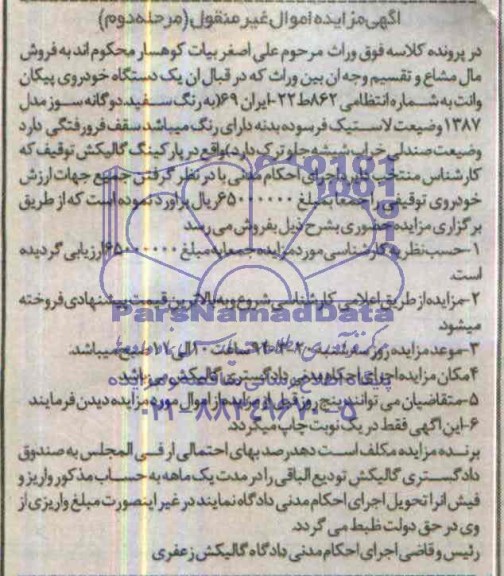 آگهی مزایده اموال غیر منقول (مرحله دوم)
در پرونده کلاسه فوق وراث مرحوم علی اصغر بیات کوهسار محکوم اند به فروش
مال مشاع و تقسیم وجه ان بین وراث که در قبال ان یک دستگاه خودروی پیکان
وانت به شماره انتظامی ۸۶۲ط۲۲-ایران ۶۹(به رنگ سفید دوگانه سوز مدل
۱۳۸۷ وضیعت لاستیک فرسوده بدنه دارای رنگ میباشد سقف فرورفتگی دارد
وضیعت صندلی خراب شیشه جلو ترک دارد)واقع در پارکینگ گالیکش توقیف که
کارشناس منتخب اجرای احکام مدنی با در نظر گرفتن جمیع جهات ارزش
خودروی توقیفی را جمعا بمبلغ ۶۵۰۰۰۰۰۰ ریال براورد نموده است که از طریق
برگزاری مزایده حضوری بشرح ذیل بفروش می رسد
۱-حسب نظریه کارشناسی مورد مزایده جمعا به مبلغ ۶۵۰۰۰۰۰۰ ارزیابی گردیده
است.
۲-مزایده از طریق اعلامی کارشناسی شروع و به بالاترین قیمت پیشنهادی فروخته
میشود
۳-موعد مزایده روز سه شنبه ساعت ۱۰ الی ۱۱ صبح میباشد.
۴مکان مزایده اجرای احکام مدنی دادگستری گالیکش می باشد
۵-متقاضیان می توانند پنج روز قبل از مزایده از اموال مورد مزایده دیدن فرمایند
۶-این اگهی فقط در یک نوبت چاپ میگردد.
برنده مزایده مکلف است ده درصد بهای احتمالی ار فی المجلس به صندوق
دادگستری گالیکش تودیع الباقی را در مدت یک ماهه به حساب مذکور واریز و
فیش انرا تحویل اجرای احکام مدنی دادگاه نمایند در غیر اینصورت مبلغ واریزی از
وی در حق دولت ظبط می گردد.
رئیس و قاضی اجرای احکام مدنی دادگاه گالیکش زعفری
ParsNamadData
پایگاه اطلاع رسانی مناقصه و مزایده
۰۲۱-۸۸۳۴۹۶۷۰-۵